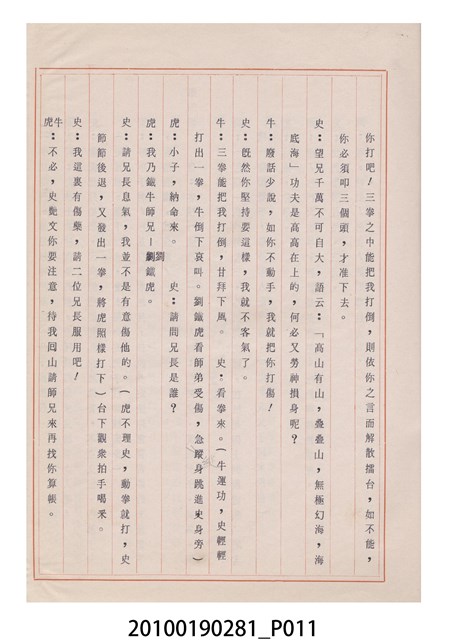 你打吧！三拳之中能把我打倒，則依你之言而解散擂台，如不能，
你必須叩三個頭，才准下去。
史：望兄千萬不可自大，語云：「高山有山，叠叠山，無極幻海，海
底海」功夫是高高在上的，何必又勞神損身呢？
牛：廢話少說，如你不動手，我就把你打傷！
史：旣然你堅持要這樣，我就不客氣了。
牛：三拳能把我打倒，甘拜下風。 史：看拳來。(牛運功，史輕輕
打出一拳，牛倒下哀叫。劉鐵虎看師弟受傷，急蹤身跳進史身旁)
虎：小子，納命來。 史：請問兄長是誰？
虎：我乃鐵牛師兄－劉鐵虎。
史：請兄長息氣，我並不是有意傷他的。(虎不理史，動拳就打，史
節節後退，又發出一拳，將虎照樣打下)台下觀衆拍手喝釆。
史：我這裏有傷藥，請二位兄長服用吧！
牛虎：不必，史艷文你要注意，待我囘山請師兄來再找你算賬。
20100190281_P011